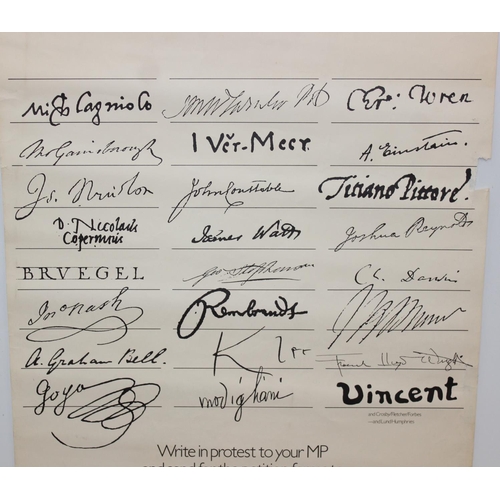 Michelagniolo
I Vēr-Meer
Chr: Wren
Tho Gainsborough
A. Einstein.
Is. Newton
John Constable
Titiano Pittore
D. Nicolaus
Copernicus
James Watt
Joshua Reynolds
BRVEGEL
Geo Stephenson
Ch. Darwin
Jno Nash
Rembrandt
A. Graham Bell
Frank Lloyd Wright
Goya
modigliani
Vincent
and Crosby/Fletcher/Forbes
—and Lund Humphries
Write in protest to your MP
and send for the petition forms to